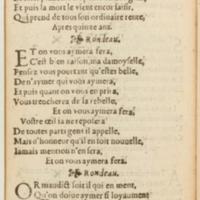 Et puis la mort le vient encor saisir,
Qui prend de tous son ordinaire rente,
Apres quinze ans.
Rondeau.
ET on vous aymera fera,
C'est bien raison, ma damoyselle,
Pensez vous pourtant qu'estes belle,
De n'aymer qui vous aymera,
Et puis quant on vous en prira,
Vous trencherez de la rebelle,
Et on vous aymera fera,
Vostre œil ia ne reposera
De toutes parts gens il appelle,
Mais d'honneur qu'il en soit nouuelle,
Iamais mention n'en fera,
Et on vous aymera fera.
Rondeau.
OR maudict soit il qui en ment,
Qu'on doiue aymer si loyaument